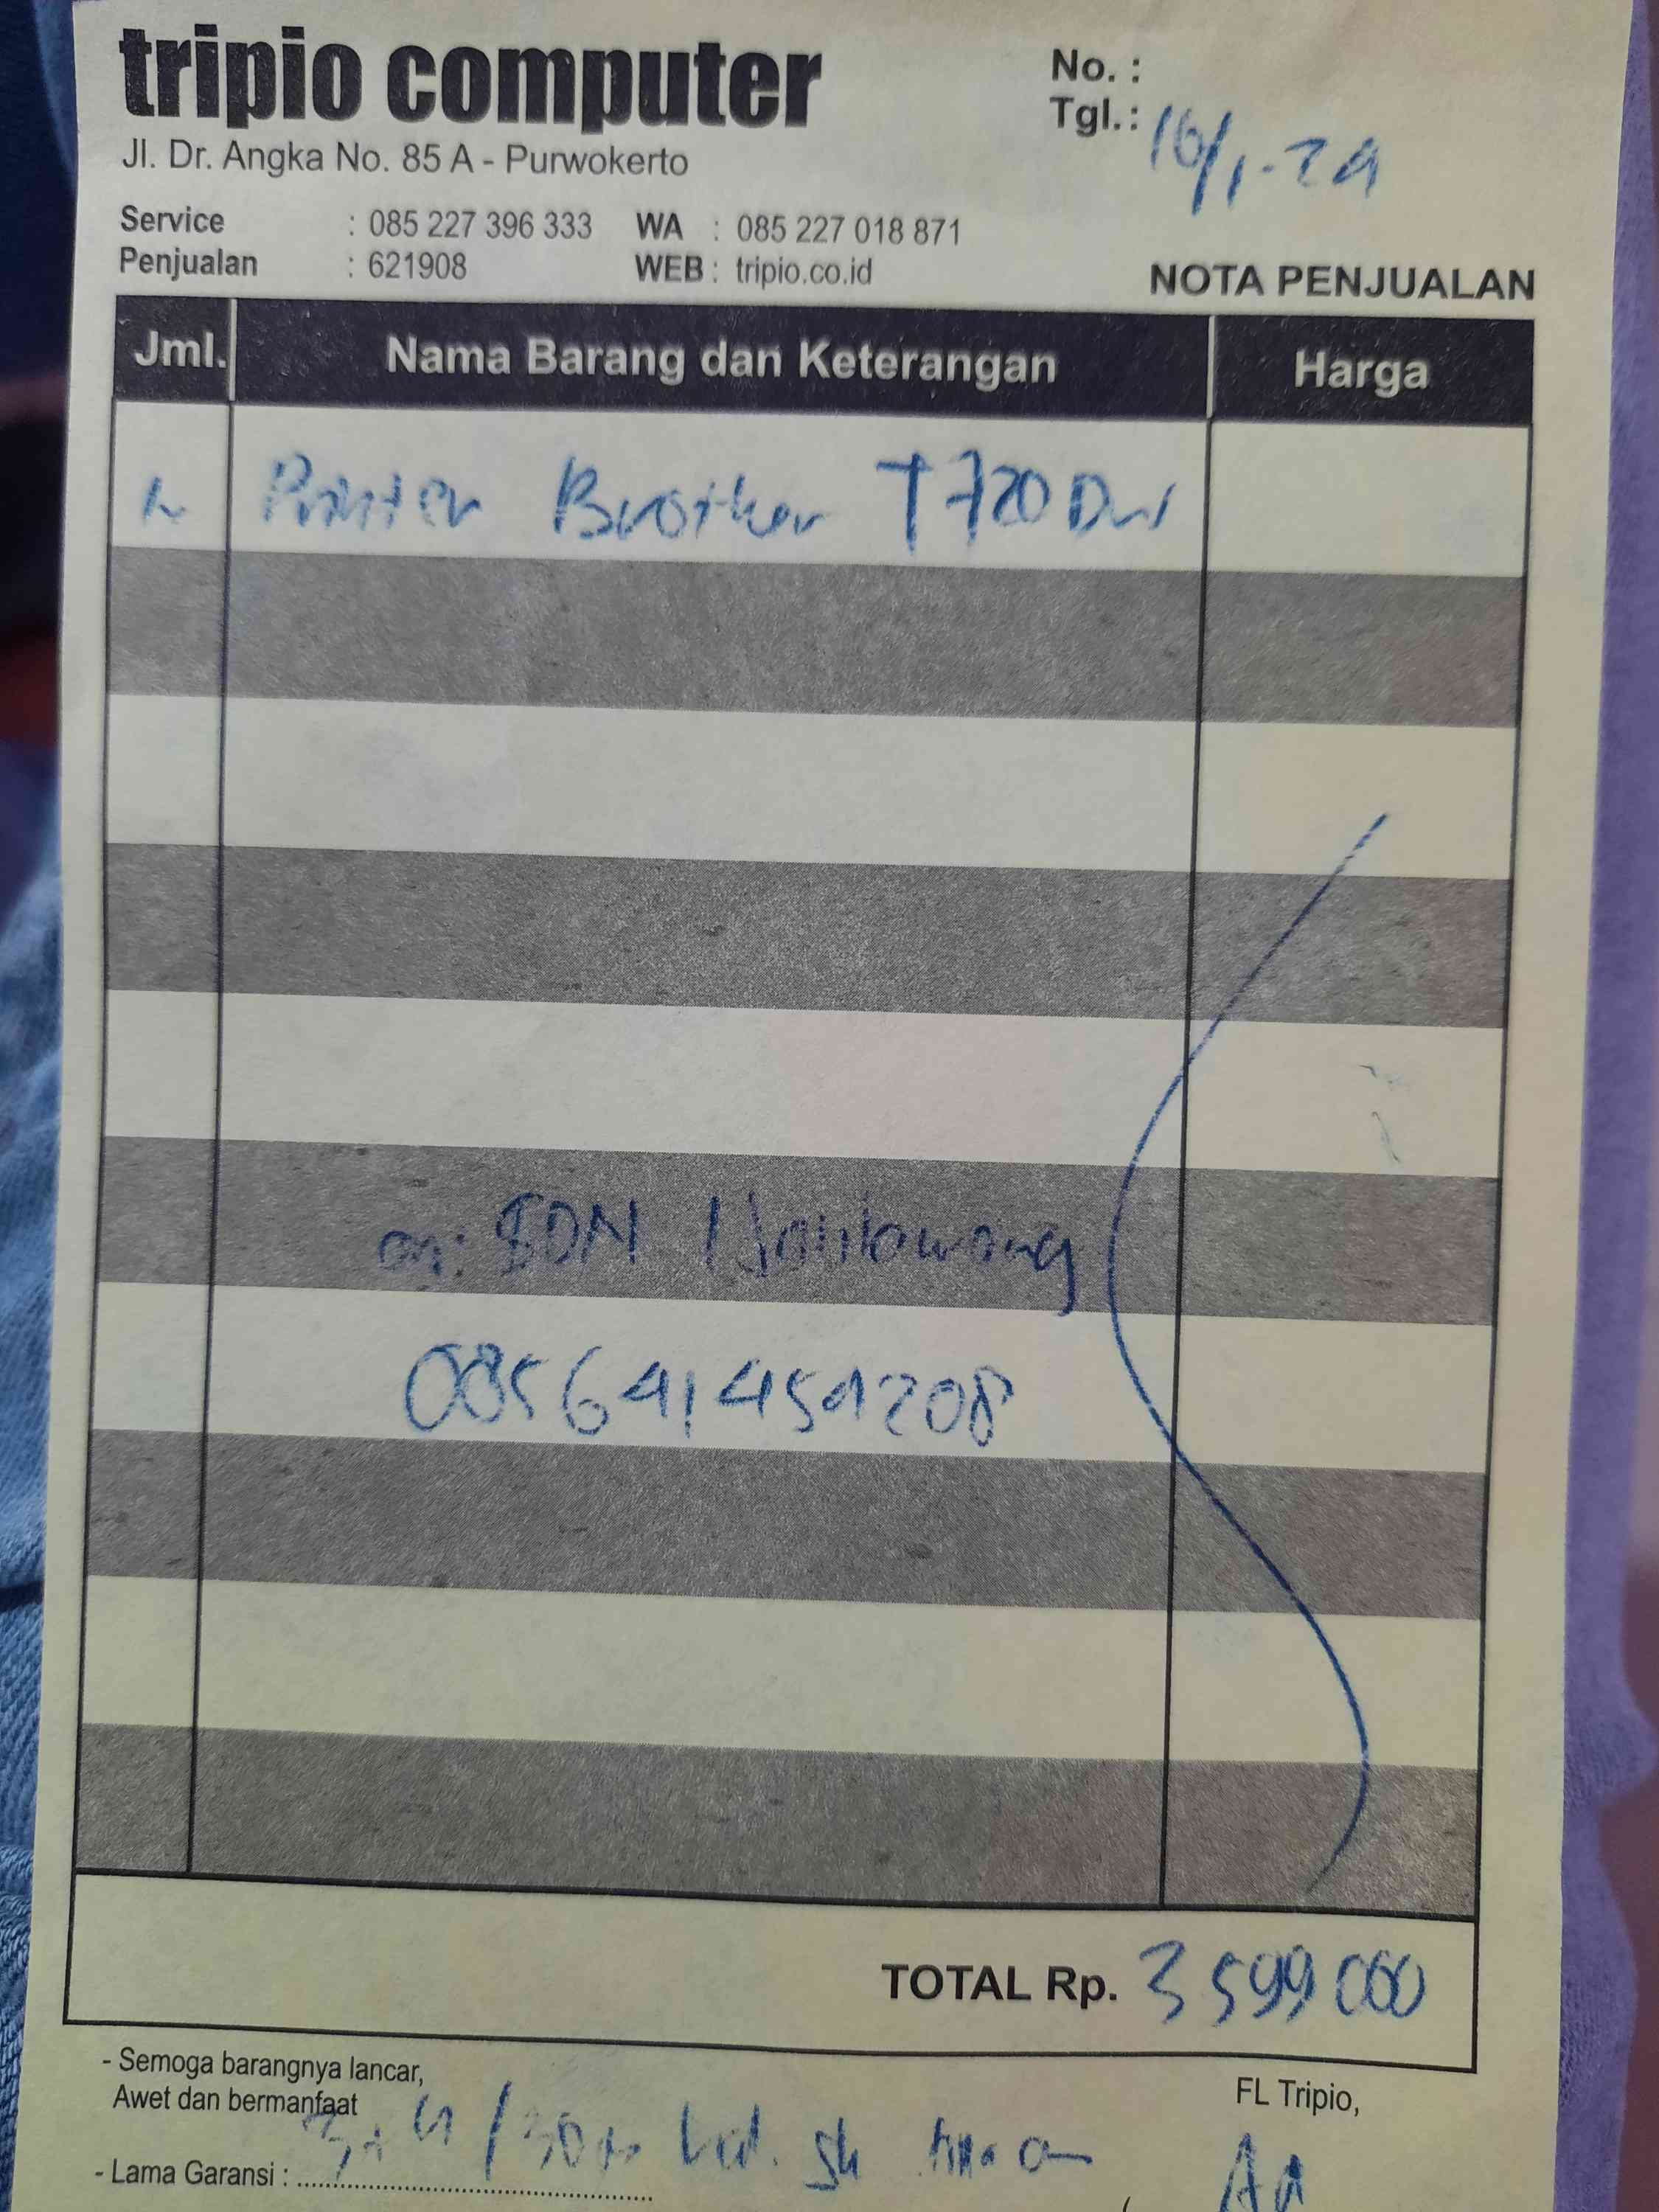 tripio computer
No. :
Tgl. : 16/1-24
Jl. Dr. Angka No. 85 A - Purwokerto
Service : 085 227 396 333 WA : 085 227 018 871
Penjualan : 621908 WEB : tripio.co.id
NOTA PENJUALAN
Jml. Nama Barang dan Keterangan Harga
Printer Brother T720DW
an: SDN
085641459208
TOTAL Rp. 3599000
- Semoga barangnya lancar,
Awet dan bermanfaat
FL Tripio,
- Lama Garansi :